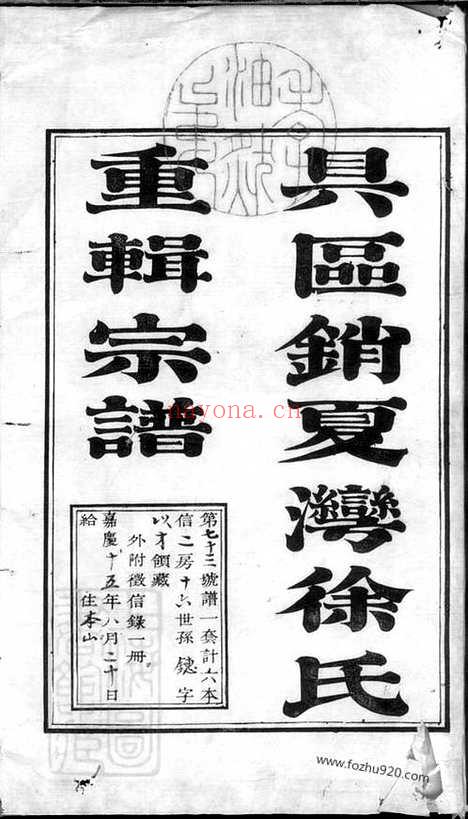 具區銷夏灣徐氏
重輯宗譜
第七十三號譜一套計六本
信二房十六世孫鏸字
以才領藏
外附徵信錄一冊
嘉慶十五年八月二十日
給 住本山
nayona.cn
www.fozhu920.com